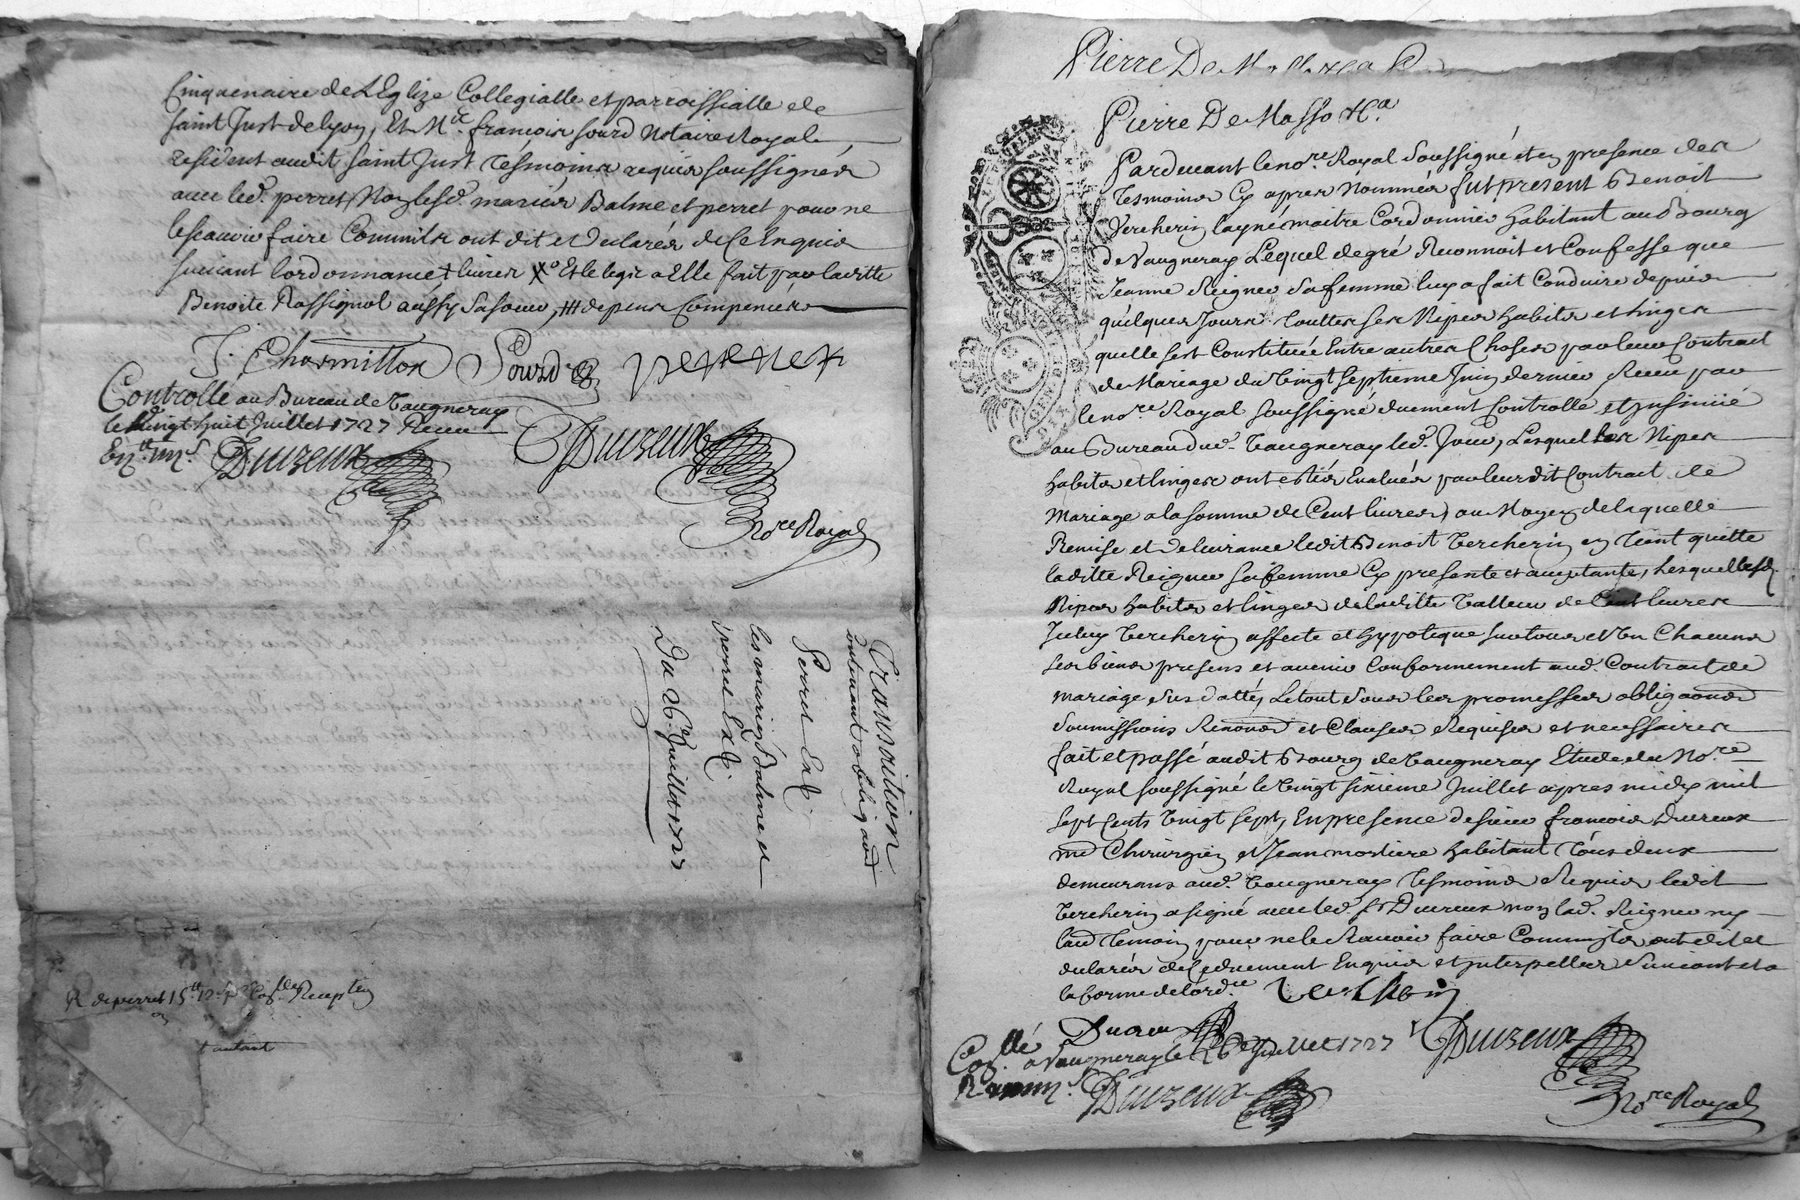 Cinquenaire de L'Eglize Collegialle et parroissialle de
saint Just de lyon, Et Me. françois sourd Notaire Royal
resident audit saint Just Tésmoins requis soussignés
avec led. perret Non lesd. mariés Balme et perret pour ne
le scavoir faire Commils ont dit et declarés de Ce Enquis
suivant lordonnance livres Xo Et le legs a Elle fait par laditte
Benoite Rossignol aussy sa soeur, depens Compensés
J. Charmillon Sourd perret
Controllé au Bureau de Vaugneray
le Vingt huit Juillet 1727 Receu
Duizeux Duizeux
No.re Royal
Transaction
contenant obligaon
Perret Ex.t
les mariés Balme et
perret Ex.t
Du 26e Juillet 1727
R de perret 15tt
t autant
Pierre De
Pierre De Masso
Pardevant le no.re Royal Soussigné et en presence des
Tesmoins Cy apres Nommés fut present Benoit
Vercherin layné maitre Cordonnier habitant au Bourg
de Vaugneray Lequel de gré Reconnoit et Confesse que
Jeanne Reignier Sa femme luy a fait Conduire depuis
quelques Jours touttes ses Nipes habits et linges
quelle sest Constituée Entre autres Choses par leur Contract
de Mariage du Vingt Septieme Juin dernier Receu par
le no.re Royal soussigné duement Controllé et Insinué
au Bureau dud. Vaugneray led. Jour, Lesquelles Nipes
habits et linges ont estés Evalués par leurdit Contract de
Mariage a la somme de Cent livres, au Moyen de laquelle
Remise et delivrance ledit Benoit Vercherin en tient quitte
laditte Reignier sa femme Cy presente et acceptante, Lesquelles
Nipes habits et linges de laditte Valleur de Cent livres
Iceluy Vercherin affecte et hypoteque sur tous et Un Chacuns
ses biens presens et avenir Conformement aud. Contract de
mariage sus datté, Le tout sous les promesses obligaons
Soumissions Renons et Clauses Requises et necessaires
fait et passé audit Bourg de Vaugneray Etude du No.re
Royal soussigné le Vingt sixieme Juillet apres midy mil
sept Cents Vingt sept, En presence de sieur françois Ducreux
me Chirurgien et Jean mortiere habitant Tous deux
demeurans aud. Vaugneray Tesmoins Requis ledit
Vercherin a signé avec led. sr Ducreux non lad. Reignier ny
laud Temoin pour ne le Scavoir faire Commils ont dit et
declarés de Ce duement Enquis et Interpellés Suivant et a
la forme de lord.ce Vercherin
Ducreux Duizeux
Con.llé a Vaugneray le 26e Juillet 1727
Duizeux
No.re Royal